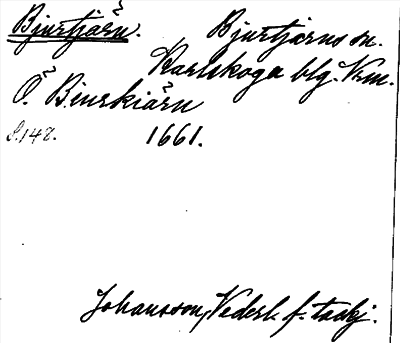 Bjurtjärn.
Bjurtjärns sn.
Karlskoga blg. Vrm.
Ö. Biurkiärn
S. 142. 1661.
Johansson, Vederl. f. taxkj.